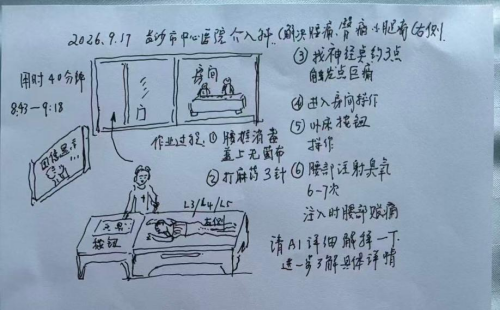 2026.9.17 长沙市中心医院介入科 (解决腰痛、臀痛、小腿痛(右侧
用时40分钟
8:43—9:18
房间
门
图像显示
作业过程:
① 腰椎消毒
盖上无菌布
② 打麻药3针
③ 找神经来约3点
触发点巨痛
④ 进入房间操作
⑤ 卧床按钮
操作
⑥ 腰部注射臭氧
6-7次
注入时腰部很痛
L3/L4/L5
右侧
按钮
请AI详细解释一下
进一步了解具体详情